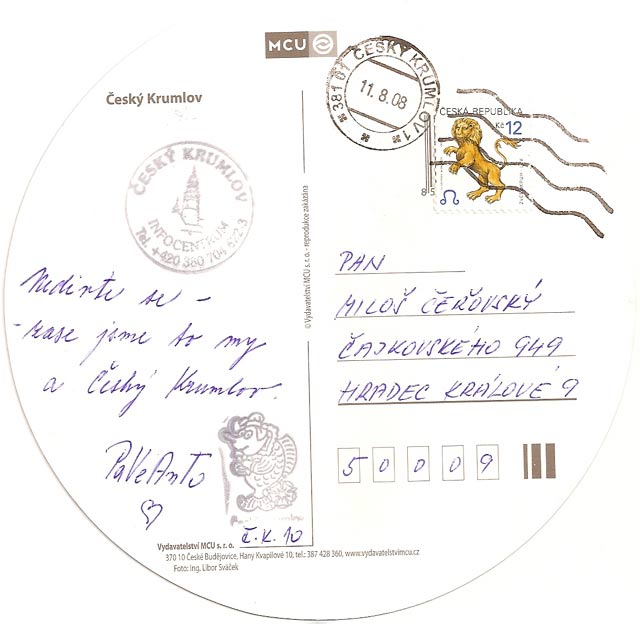 MCU
Český Krumlov
381 01 ČESKÝ KRUMLOV 1
11.8.08
ČESKÁ REPUBLIKA
Kč 12
ČESKÝ KRUMLOV
INFOCENTRUM
Tel. +420 380 704 622-3
© Vydavatelství MCU s.r.o. - reprodukce zakázána
Nedivte se -
- zase jsme to my
a Český Krumlov.
PaVeAnTo
Č.K. 10
PAN
MILOŠ ČEŘOVSKÝ
ČAJKOVSKÉHO 949
HRADEC KRÁLOVÉ 9
5 0 0 0 9
Vydavatelství MCU s. r. o.
370 10 České Budějovice, Hany Kvapilové 10, tel.: 387 428 360, www.vydavatelstvimcu.cz
Foto: Ing. Libor Sváček